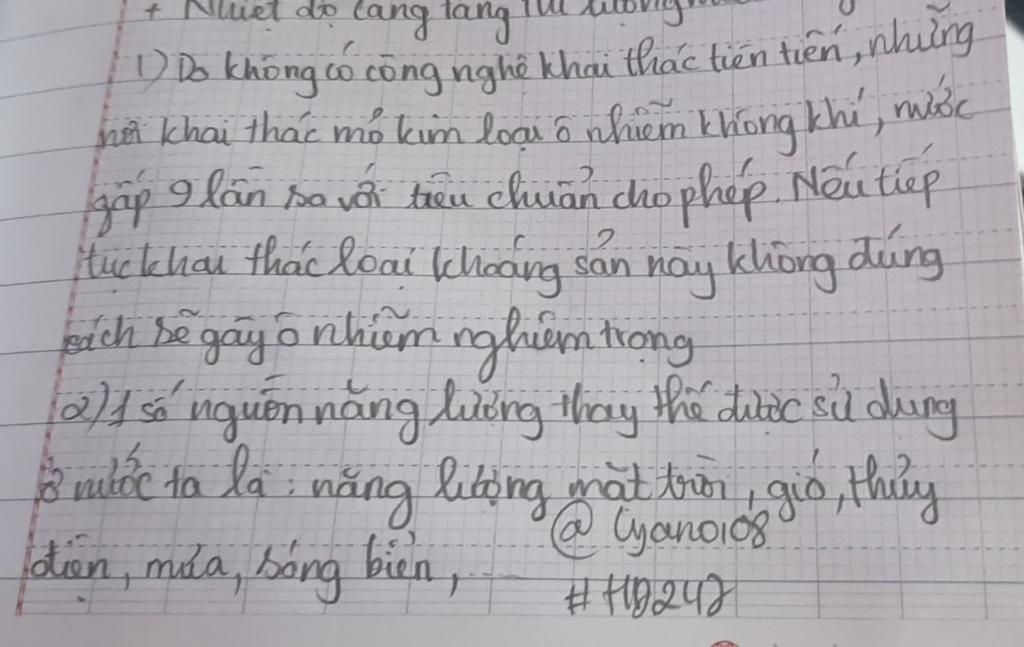 + Nhiệt độ càng tăng thì lượng
1) Do không có công nghệ khai thác tiên tiến, những
nơi khai thác mỏ kim loại ô nhiễm không khí, nước
gấp 9 lần so với tiêu chuẩn cho phép. Nếu tiếp
tục khai thác loại khoáng sản này không đúng
cách sẽ gây ô nhiễm nghiêm trọng
2) 1 số nguồn năng lượng thay thế được sử dụng
ở nước ta là: năng lượng mặt trời, gió, thủy
điện, mưa, sóng biển, ...
@ Cyano108
# HD242